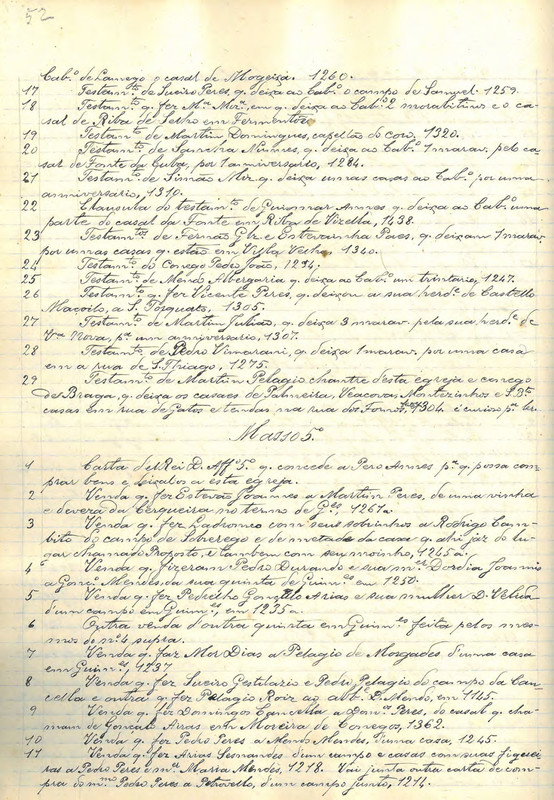 52
Cab.º de Lamego, casal de Mogeiza. 1260.
17 Testam.to de Sueiro Peres, q. deixa ao Cab.º o campo de Samuel. 1259.
18 Testam.to q. fez M.ª Mir.ª, em q. deixa ao Cab.º 2 morabitinos e o ca-
sal de Riba de Selho em Fermentões
19 Testam.to de Martim Domingues, capellão do coro, 1320.
20 Testam.to de Nunes, q. deixa ao Cab.º 1 marav. pelo ca-
sal de Fonte da Cuba, por 1 anniversario, 1284.
21 Testam.to de Simão Mir. q. deixa umas casas ao Cab.º por um
anniversario, 1310.
22 Clausula do testam.to de Guiomar Annes q. deixa ao Cab.º uma
parte do casal da Fonte em Riba de Vizella, 1438.
23 Testam.tos de Fernão Glz e Estevainha Peres, q. deixam 1 marav.
por umas casas q. estão em Villa Velha, 1340.
24 Testam.to do Conego Pedro João, 1214.
25 Testam.to de Mend Abergaria q. deixa ao Cab.º um trintario, 1247.
26 Testam.to q. fez Vicente Peres, q. deixou a sua herd.e de Castello
a S. Torquato, 1305.
27 Testam.to de Martim Julião, q. deixa 3 marav. pela sua herd.e de
V.ª Nova, p.r um anniversario, 1307.
28 Testam.to de Pedro Vimarani, q. deixa 1 marav. por uma casa
em a rua de S. Thiago, 1275.
29 Testam.to de Martim Pelagio chantre desta egreja e conego
de Braga, q. deixa os casaes de Palmeira, Veacovas, Montezinhos e
casas em rua de Gatos e tendas na rua dos Fornos, 1304. é curioso p.ª ler
Masso 5.º
1 Carta del Rei D. Aff.º 5.º q. concede a Pero Annes p.ª q. possa com-
prar bens e deixal-os a esta egreja.
2 Venda q. fez Estevão Joannes a Martim Peres, de uma vinha
e devera da Cerqueira no termo de G.es 1267.
3 Venda q. fez Ladromeo com seus sobrinhos a Rodrigo Cam-
bito do campo de Sobrerego e de metade da casa q. ahi jaz do lu-
gar chamado Proposto, e tambem com seu moinho, 1245.
4 Venda q. fizeram Pedro Durando e sua m.er Dordia Joannis
a Gonç.º Mendes, da sua quinta de Guim.es em 1250.
5 Venda q. fez Pedrecho Gonçallo Arias e sua mulher D. Elvira
d'um campo em Guim.es, em 1235.
6 Outra venda d'outra quinta em Guim.es feita pelos mes-
mos do n.º 5 supra.
7 Venda q. faz Mor Dias a Pelagio de Morgades d'uma casa
em Guim.es, 1237
8 Venda q. fez Sueiro Gestilario e Pedro Pelagio do campo da Can-
cella e outra q. fez Pelagio Roiz ao abb.e D. Mendo, em 1145.
9 Venda q. fez Domingos Cancella a Dom.os Peres, do casal q. cha-
mam de Gonçalo Arias em Moreira de Conegos, 1362.
10 Venda q. fez Pedro Peres a Mendo Mendes, d'uma casa, 1245.
11 Venda q. fez Arias Sesnandes d'um campo e casas com suas figuei-
ras a Pedro Peres e m.er Maria Mendes, 1218. Vai junta outra carta de com-
pra do m.mo Pedro Peres a Petronello, d'um campo junto, 1214.